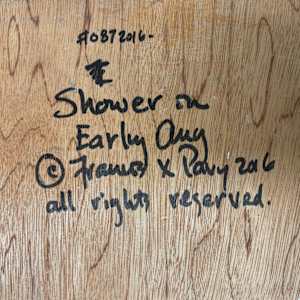 #0872016-
Shower in
Early Aug
© Francis X Pavy 2016
all rights reserved.